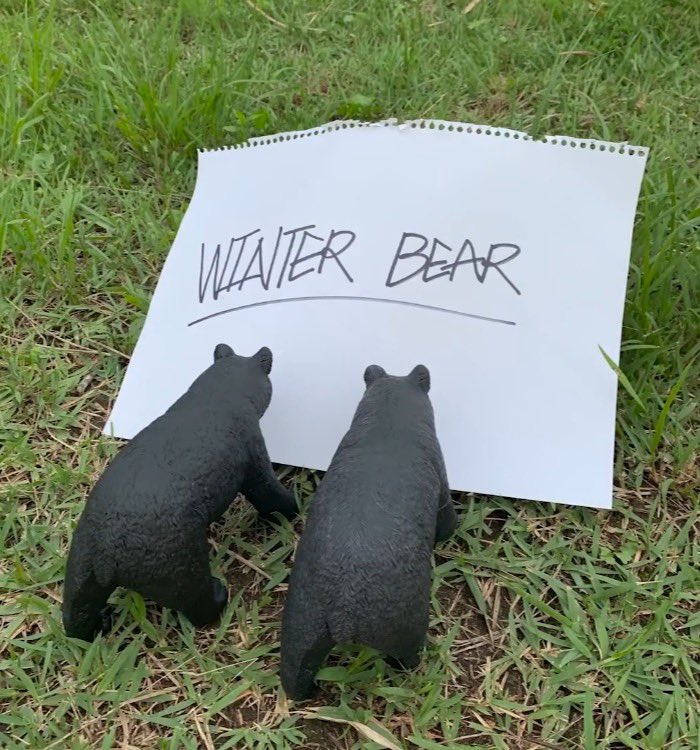 WINTER BEAR